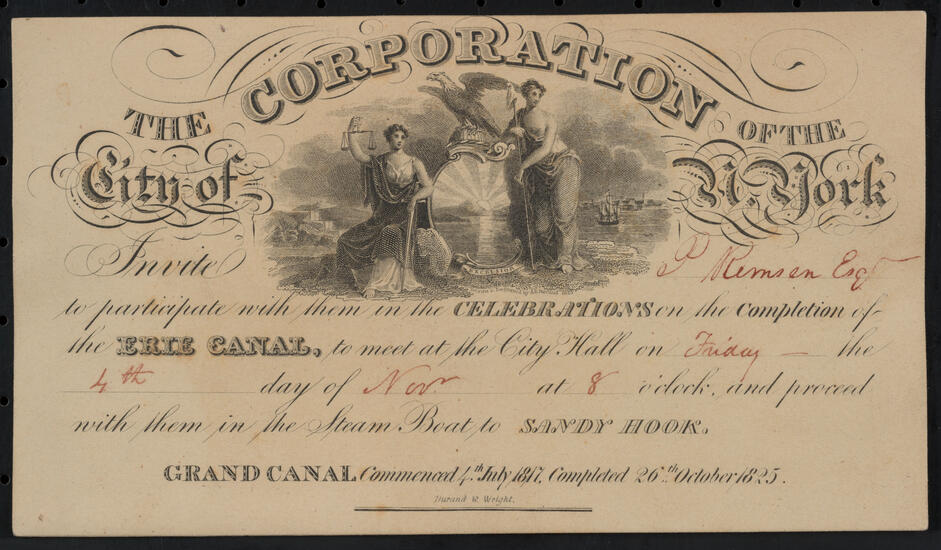 THE CORPORATION OF THE
City of N. York
EXCELSIOR
Invite P Remsen Esqr
to participate with them in the CELEBRATIONS on the Completion of
the ERIE CANAL, to meet at the City Hall on Friday — the
4th day of Novr at 8 o'clock, and proceed
with them in the Steam Boat to SANDY HOOK.
GRAND CANAL Commenced 4th July 1817, Completed 26th October 1825.
Durand & Wright.